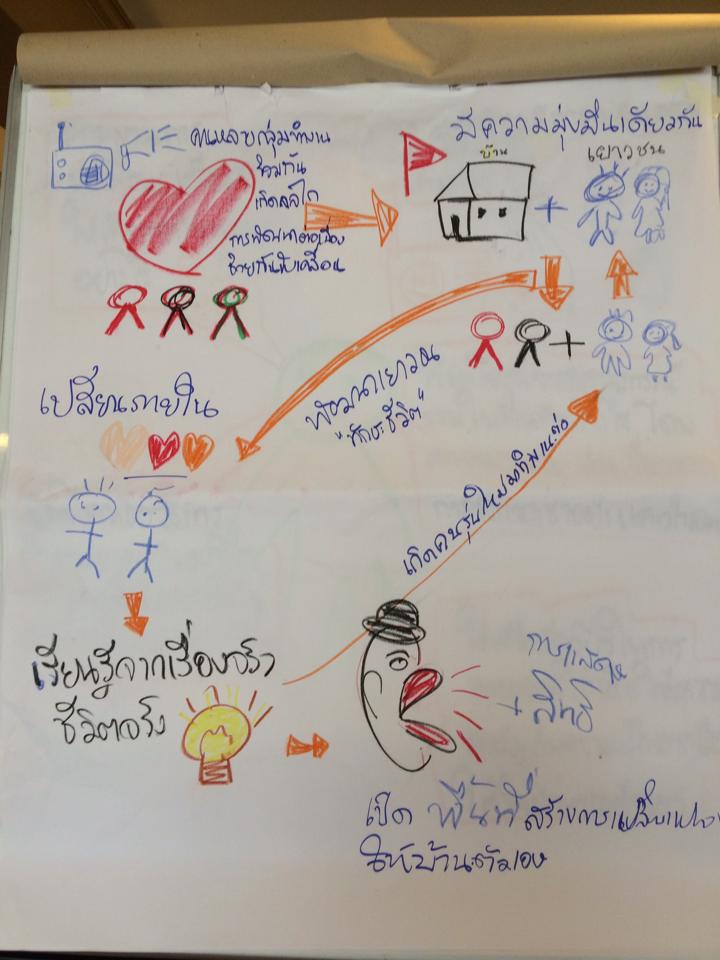 คนหลายกลุ่มทำงาน
ร่วมกัน
เกิดกลไก
การพัฒนาต่อเนื่อง
ช่วยกันขับเคลื่อน
มีความมุ่งมั่นเดียวกัน
บ้าน
เยาวชน
พัฒนาเยาวชน
"ทักษะชีวิต"
เปลี่ยนภายใน
เกิดคนรุ่นใหม่มาทำงานต่อ
เรียนรู้จากเรื่องจริง
ชีวิตจริง
การแสดง
+ สิทธิ
เปิด พื้นที่ สร้างการเปลี่ยนแปลง
ให้บ้านตัวเอง